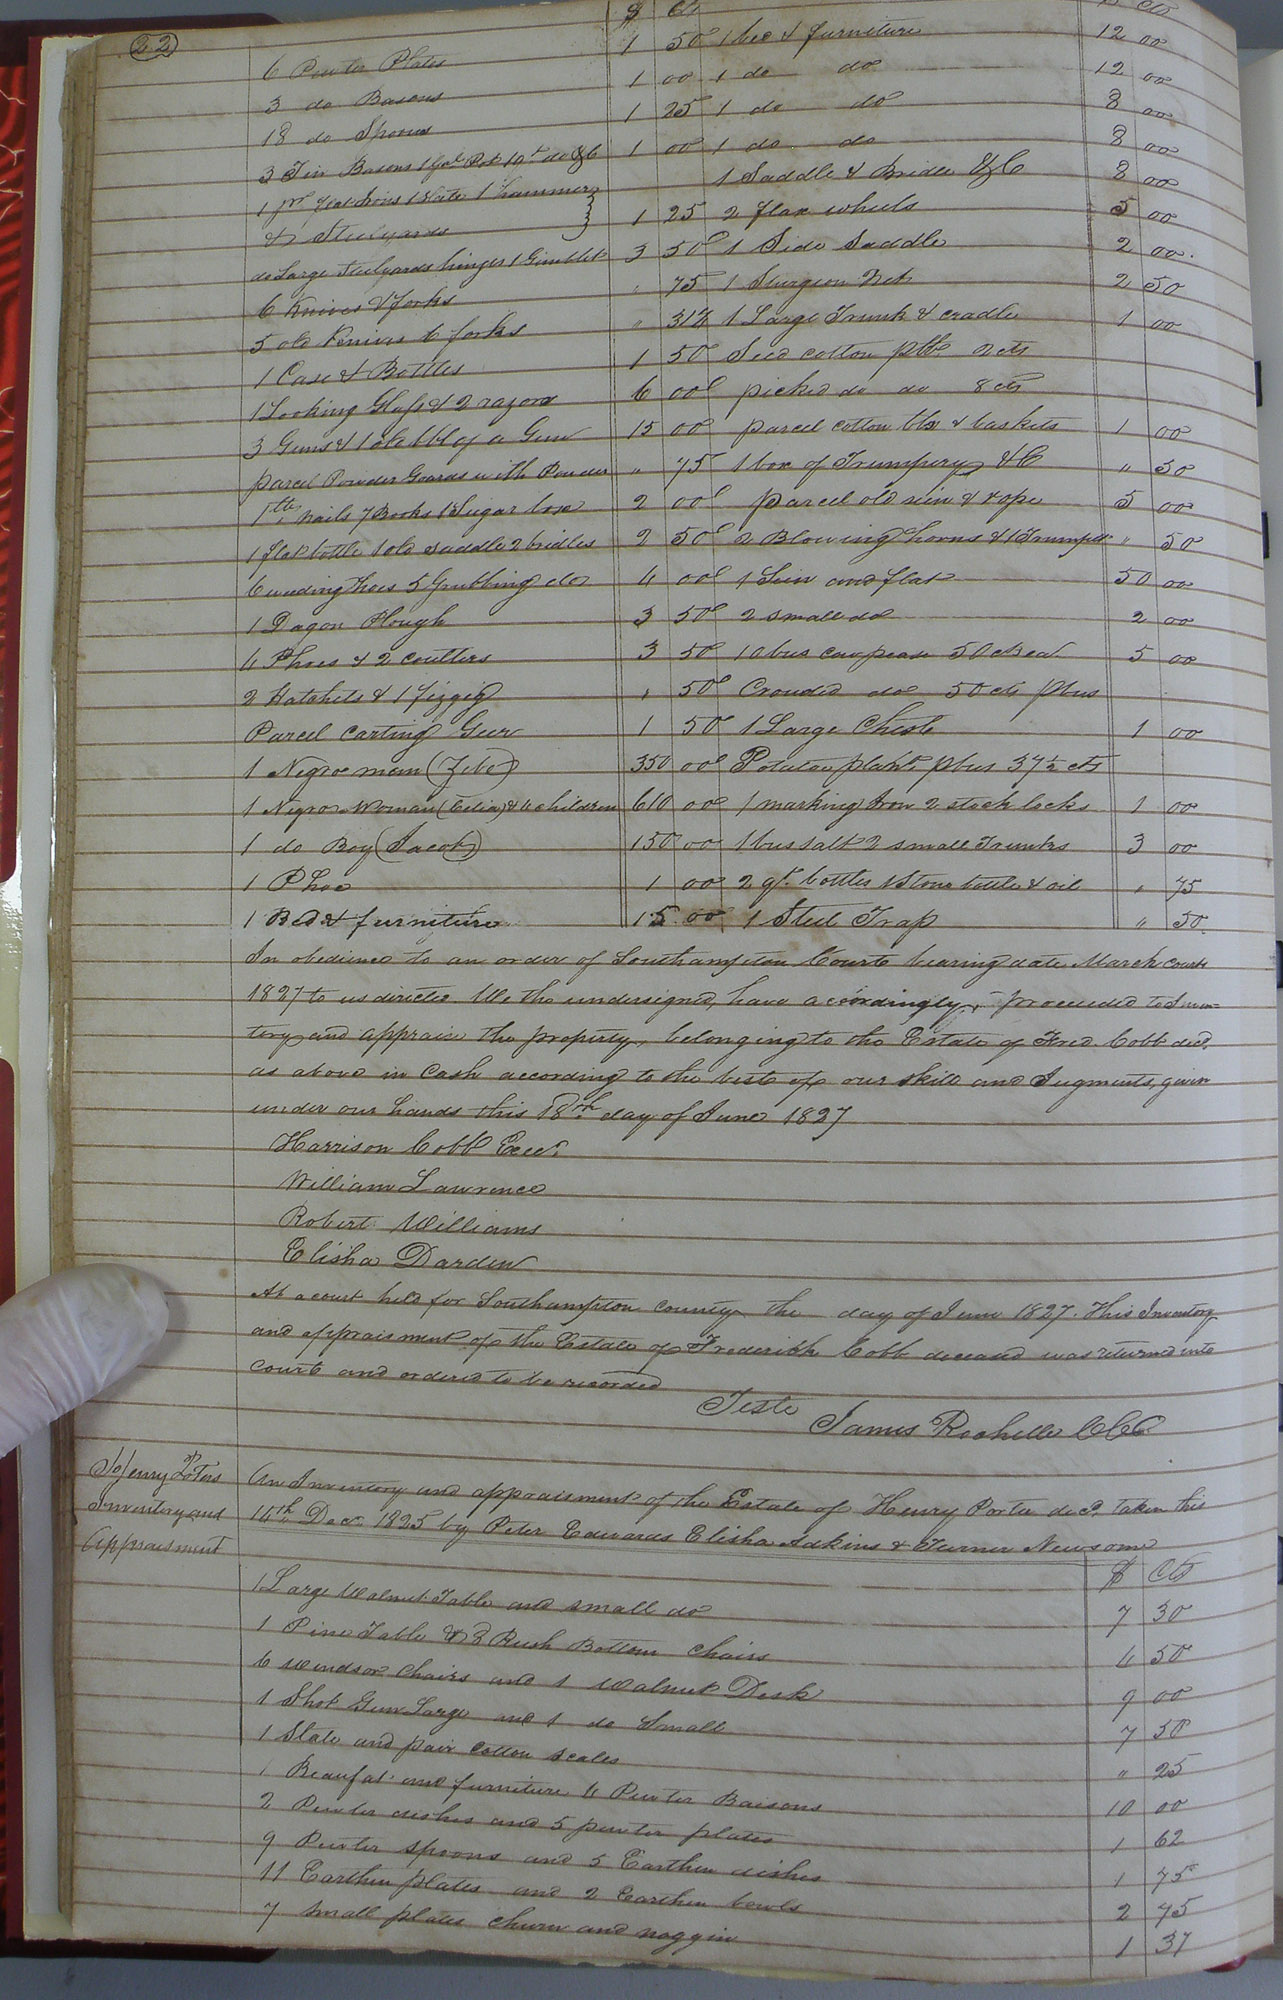 22
$ Cts
6 Pewter Plates 1 50 1 bed & furniture 12 00
3 do Basons 1 00 1 do do 12 00
18 do Spoons 1 25 1 do do 8 00
3 Tin Basons 1 Pot do &C 1 00 1 do do 8 00
1 pr flat Irons 1 Slate 1 hammer 1 Saddle & Bridle &C 8 00
& Steelyards 1 25 2 flax wheels 5 00
do Large Steelyards hinges 1 Gimblet 3 50 1 Side Saddle 2 00
6 Knives & forks " 75 1 Sturgeon Net 2 50
5 old Knives 6 forks " 31¼ 1 Large Trunk & cradle 1 00
1 Case & Bottles 1 50 Seed cotton plb 2 cts
1 Looking Glass & 2 razors 6 00 picked do do 8 cts
3 Guns & 1 old bbl of a Gun 15 00 parcel cotton bbs & baskets 1 00
parcel Powder Goards with Powder " 75 1 box of Trumpery &C " 50
nails 7 Books 1 Sugar box 2 00 parcel old sein & rope 5 00
1 flat bottle 1 old saddle 2 bridles 2 50 2 Blowing horns & 1 Trumpet " 50
6 weeding hoes 5 Grubbing do 4 00 1 Sein and flat 50 00
1 Dagon Plough 3 50 2 small do 2 00
4 Phoes & 2 coulters 3 50 10 bus cow pease 50 cts ea 5 00
2 Hatchets & 1 fizgig " 50 Crouded do 50 cts pbus
Parcel carting Geer 1 50 1 Large Chest 1 00
1 Negroe man (Zebe) 350 00 Potatoe plants pbus 37½ cts
1 Negroe Woman (Celia) & 4 children 610 00 1 marking Iron 2 stock locks 1 00
1 do Boy (Jacob) 150 00 1 bus salt 2 small Trunks 3 00
1 Phoe 1 00 2 qt bottles 1 Stone bottle & oil " 75
1 Bed & furniture 15 00 1 Steel Trap " 50
In obedience to an order of Southampton Court bearing date March court
1827 to us directed We the undersigned, have accordingly, proceeded to Inven-
tory and appraise the property, belonging to the Estate of Fred. Cobb decd.
as above in Cash according to the best of our skill and Jugments, given
under our hands this 18th day of June 1827
Harrison Cobb Exer.
William Lawrence
Robert Williams
Elisha Darden
At a court held for Southampton county the day of June 1827. This Inventory
and appraisment of the Estate of Frederick Cobb deceased was returned into
court and ordered to be recorded
Teste
James Rochelle CCC
Henry Porters An Inventory and appraisment of the Estate of Henry Porter decd. taken this
Inventory and 14th Dec. 1825 by Peter Edwards Elisha Adkins & Turner Newsome
Appraisment
$ Cts
1 Large Walnut Table and small do 7 30
1 Pine Table & 3 Rush Bottom chairs 4 50
6 Windsor Chairs and 1 Walnut Desk 9 00
1 Shot Gun Large and 1 do Small 7 50
1 Slate and pair cotton scales " 25
1 Beaufat and furniture 4 Pewter Baisons 10 00
2 Pewter dishes and 5 pewter plates 1 62
9 Pewter spoons and 5 Earthen dishes 1 75
11 Earthen plates and 2 Earthen bowls 2 75
7 small plates churn and noggin 1 37